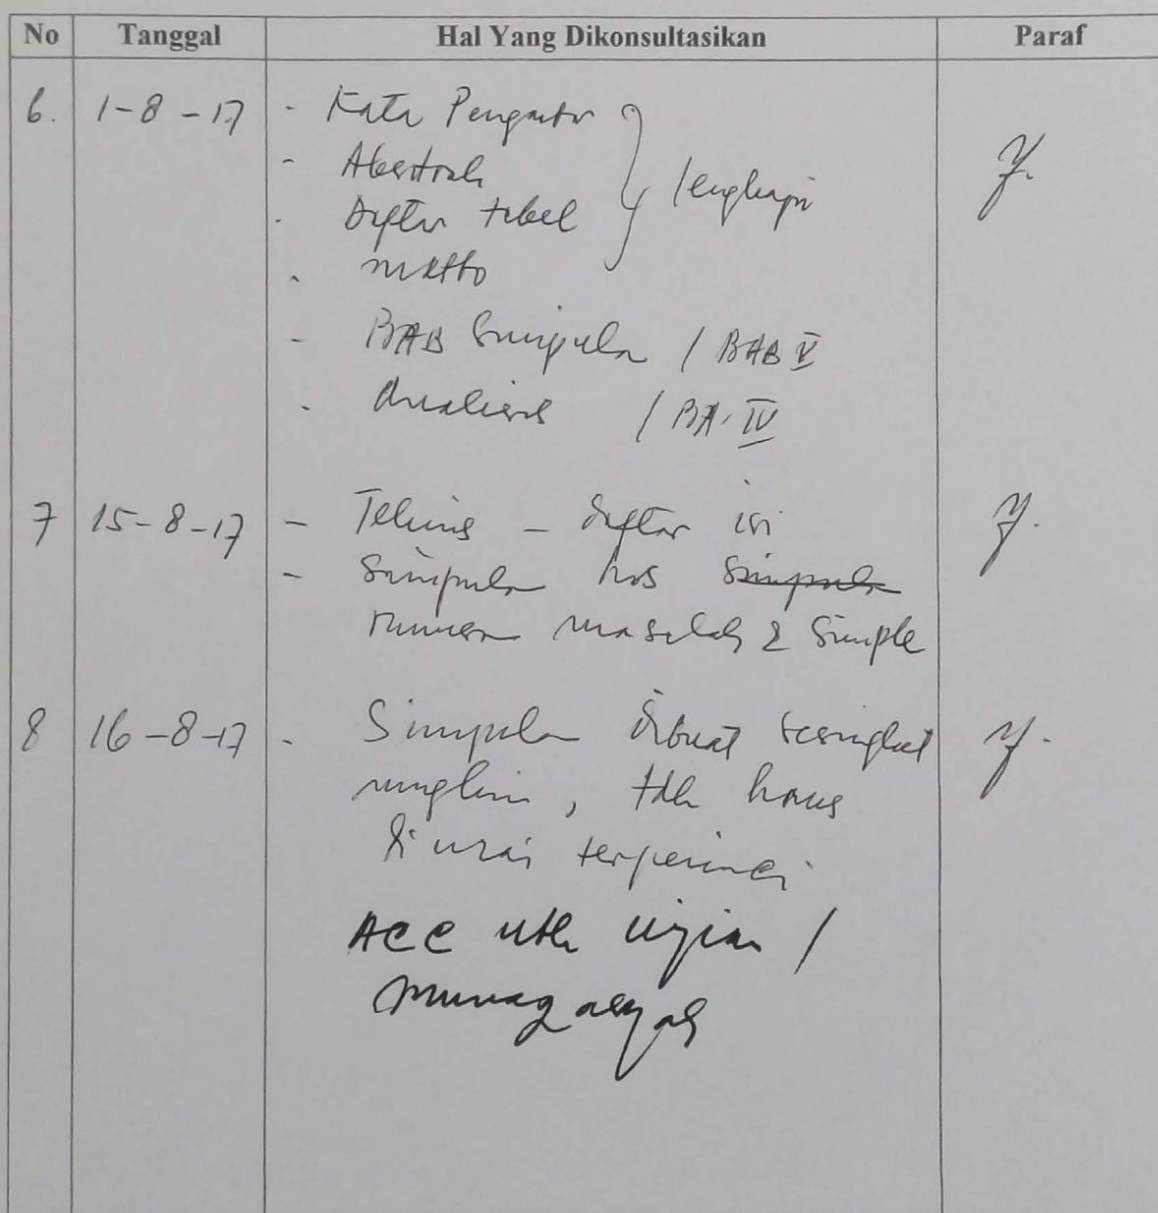 No Tanggal Hal Yang Dikonsultasikan Paraf
6. 1-8-17 - Kata Pengantar
- Abstrak
- Daftar tabel lengkapi
- motto
- BAB Simpula / BAB V
- Analisis / BA. IV
7 15-8-17 - Teknis - daftar isi
- Simpula hrs Simpula
rumusa masalah & Simple
8 16-8-17 - Simpula dibuat sesingkat
mungkin, tdk harus
di urai terperinci
Acc utk ujian /
Munaqasyah